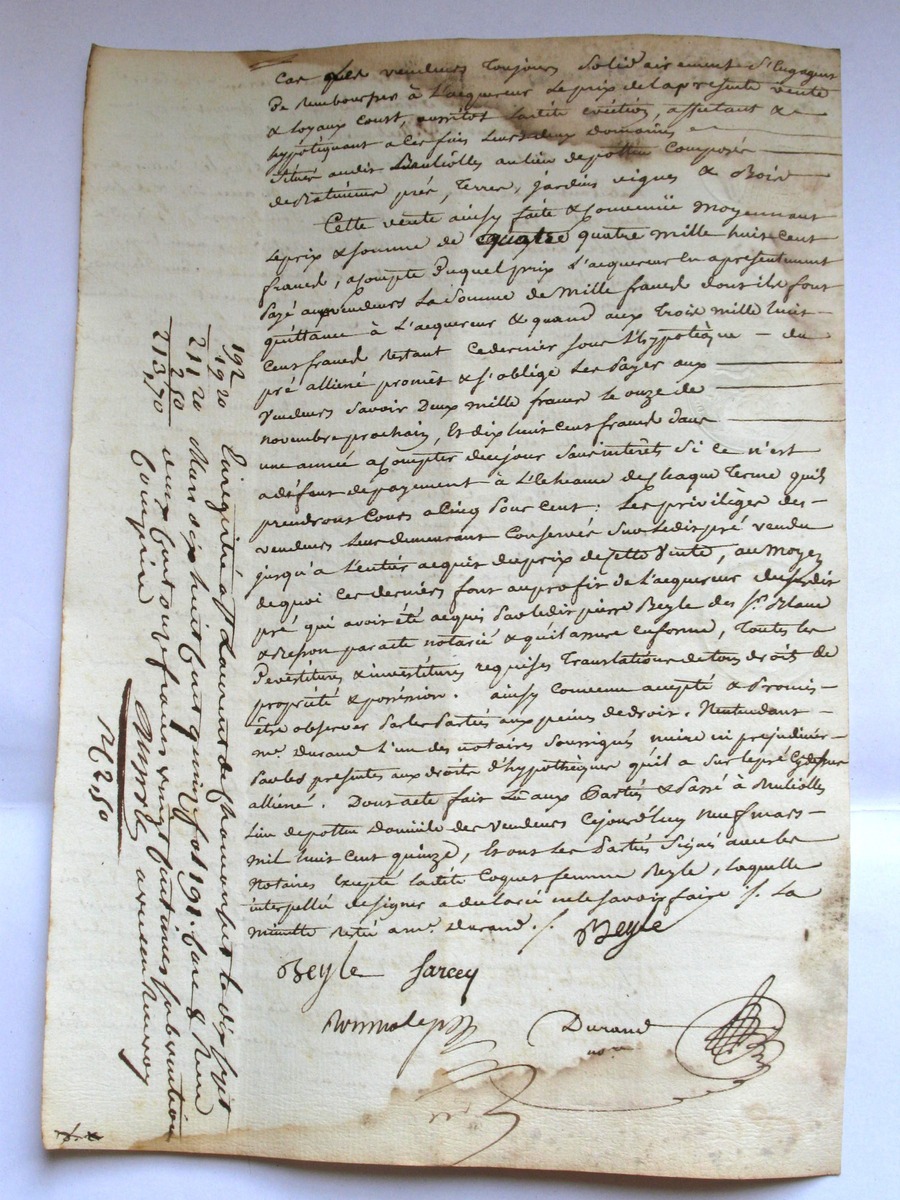 cas les vendeurs toujours solidairement s'engagent
de rembourser à l'acquereur le prix de la presente vente
& loyaux couts, aussitot ladite eviction, affectant &
hypotéquant a ces fins leurs deux domaines
situés audit lieu au lieu de pottin composés
de batiment prés, terres, jardins vignes & Bois
Cette vente ainsy faite & convenüe moyennant
le prix & somme de quatre quatre mille huit cent
francs, acompte duquel prix l'acquereur en a présentement
payé aux vendeurs la somme de mille francs dont ils font
quittance à l'acquereur & quand aux trois mille huit
cent francs restant ce dernier sous l'hypotèque du
pré alliené promet & s'oblige les payer aux
vendeurs savoir deux mille francs le onze de
novembre prochain, Et dix huit cent francs dans
une année a compter de ce jour sans interêts si ce n'est
a défaut de payement à l'écheance de chaque terme qu'ils
prendront cours a cinq pour cent : Les privilèges des
vendeurs leur demeurant conservés sur ledit pré vendu
jusqu'a l'entier acquit du prix de cette vente, au moyen
de quoi ces derniers font au profit de l'acquereur du susdit
pré qui avoit été acquis par ledit pierre Beyle des srs Blanc
& Besson par acte notarié & qu'il assure en forme, toutes les
devestitures & investitures requises translations de tous droits de
propriété & possession. ainsy convenu accepté & promis
être observer par les parties aux peines de droit. N'entendant
me. Durand l'un des notaires soussignés nuire ni prejudicier
par les presentes aux droits d'hypothèques qu'il a sur le pré cy dessus
alliené. Dont acte fait lu aux Parties & Passé à
lieu de pottin domicile des vendeurs cejourd'huy neuf mars
mil huit cent quinze, Et ont les Parties signés avec les
Notaires excepté ladite Coquet femme Beyle, laquelle
interpellée de signer a declaré ne le savoir faire ./. La
minutte restée a me. Durand ./.
Beyle
Beyle Sarcey
Durand
nore
Enregistré a St Laurent de Chamousset le dix huit
Mars dix huit cent quinze fol 191 case 8 Reçu
deux cent onze francs vingt centimes subvention
Comprise
192
19 20
211 20
2 50
213,70
262,50